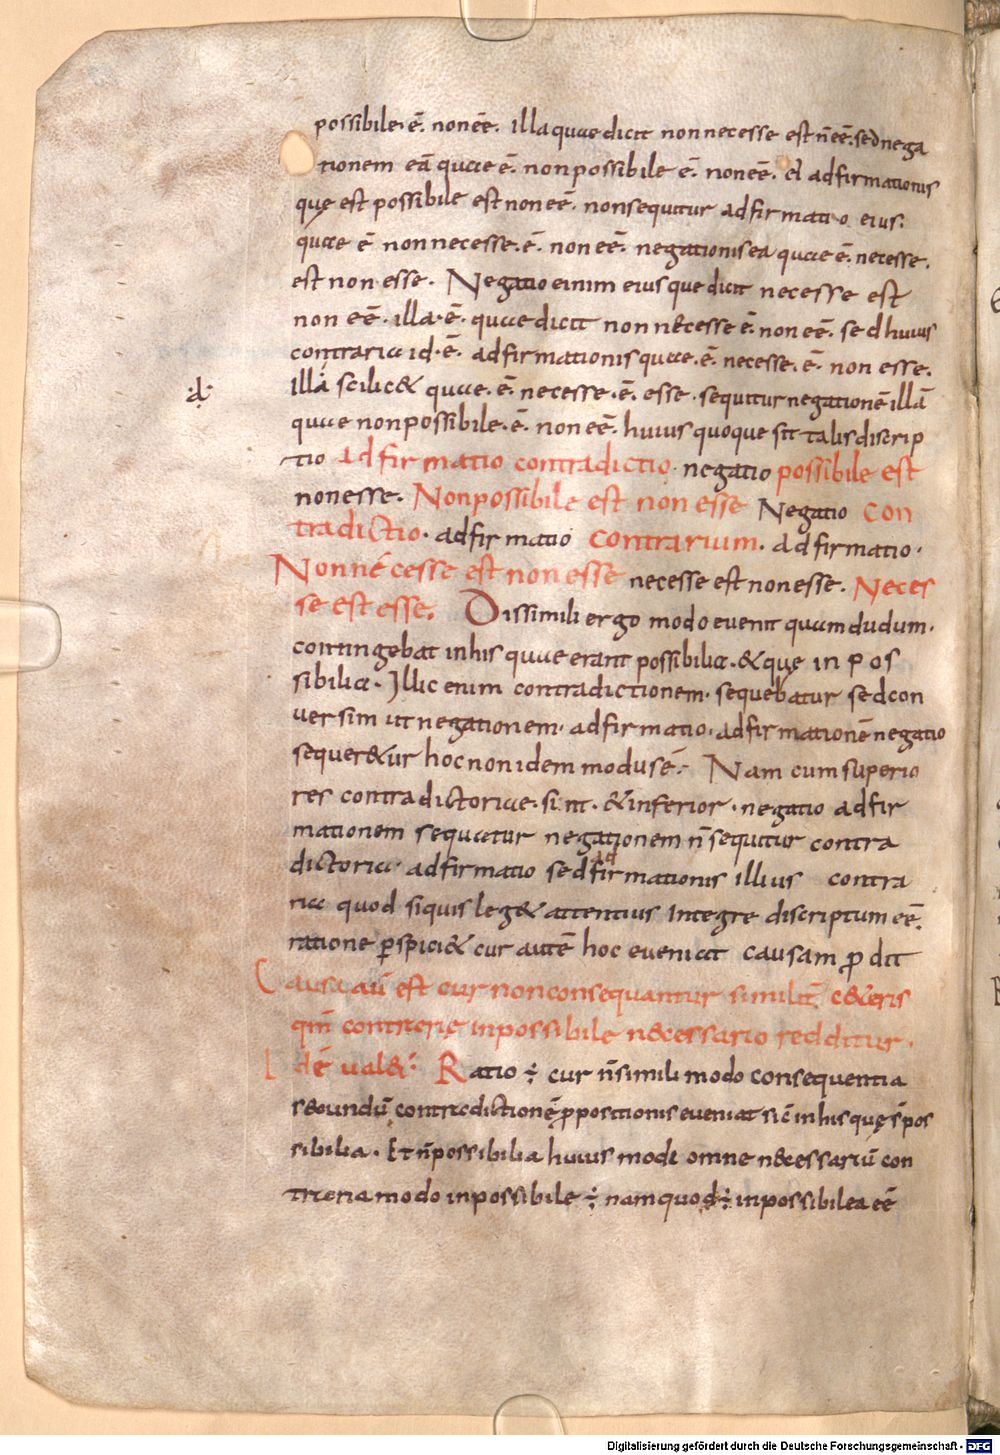 possibile·ē· non eē· Illa quae dicit non necesse est n̄ eē· sed nega
tionem eā quae ē· non possibile ē· non eē· Et adfirmationis
quę est possibile est non eē· non sequitur adfirmatio eius·
quae ē non necesse·ē· non eē· negationis ea quae ē· necesse·
est non esse· Negatio einim eius que dicit necesse est
non eē· illa·ē· quae dicit non necesse ē· non eē· sed huius
contraria id·ē· adfirmationis quae·ē· necesse·ē· non esse·
·d·
illa scilic& quae·ē· necesse·ē· esse· sequitur negationē illā
quae non possibile·ē· non eē· huius quoque sit talis discrip
tio Adfirmatio contradictio· negatio possibile est
non esse· Non possibile est non esse Negatio con
tradictio· adfirmatio contrarium· adfirmatio·
Non necesse est non esse necesse est non esse· Neces
se est esse· Dissimili ergo modo evenit quam dudum·
contingebat in his quae erant possibilia· & quę in pos
sibilia· Illic enim contradictionem· sequebatur sed con
versim ut negationem· adfirmatio· adfirmationē negatio
sequer&ur hoc non idem modus ē· Nam cum superio
res contradictoriae· sint· & inferior· negatio adfir
mationem sequatur negationem n̄ sequitur contra
dictoria· adfirmatio sed ad firmationis illius contra
ria quod siquis leg& attentius integre discriptum eē·
ratione p̱spici& cur autē hoc eveniat causam p̱ dit
Causa aū est cur non consequantur similit̄ c&eris
qm̄ contrarię inpossibile n&cessario redditur·
Idē val&· Ratio ÷ cur n̄ simili modo consequentia
secundū contradictionē p̱positionis eveniat sic̄ in his quę s̄ pos
sibilia· Et n̄ possibilia huius modi omne n&cessariū con
traria modo inpossibile ÷ nam quod ÷ inpossibilea eē
Digitalisierung gefördert durch die Deutsche Forschungsgemeinschaft - DFG